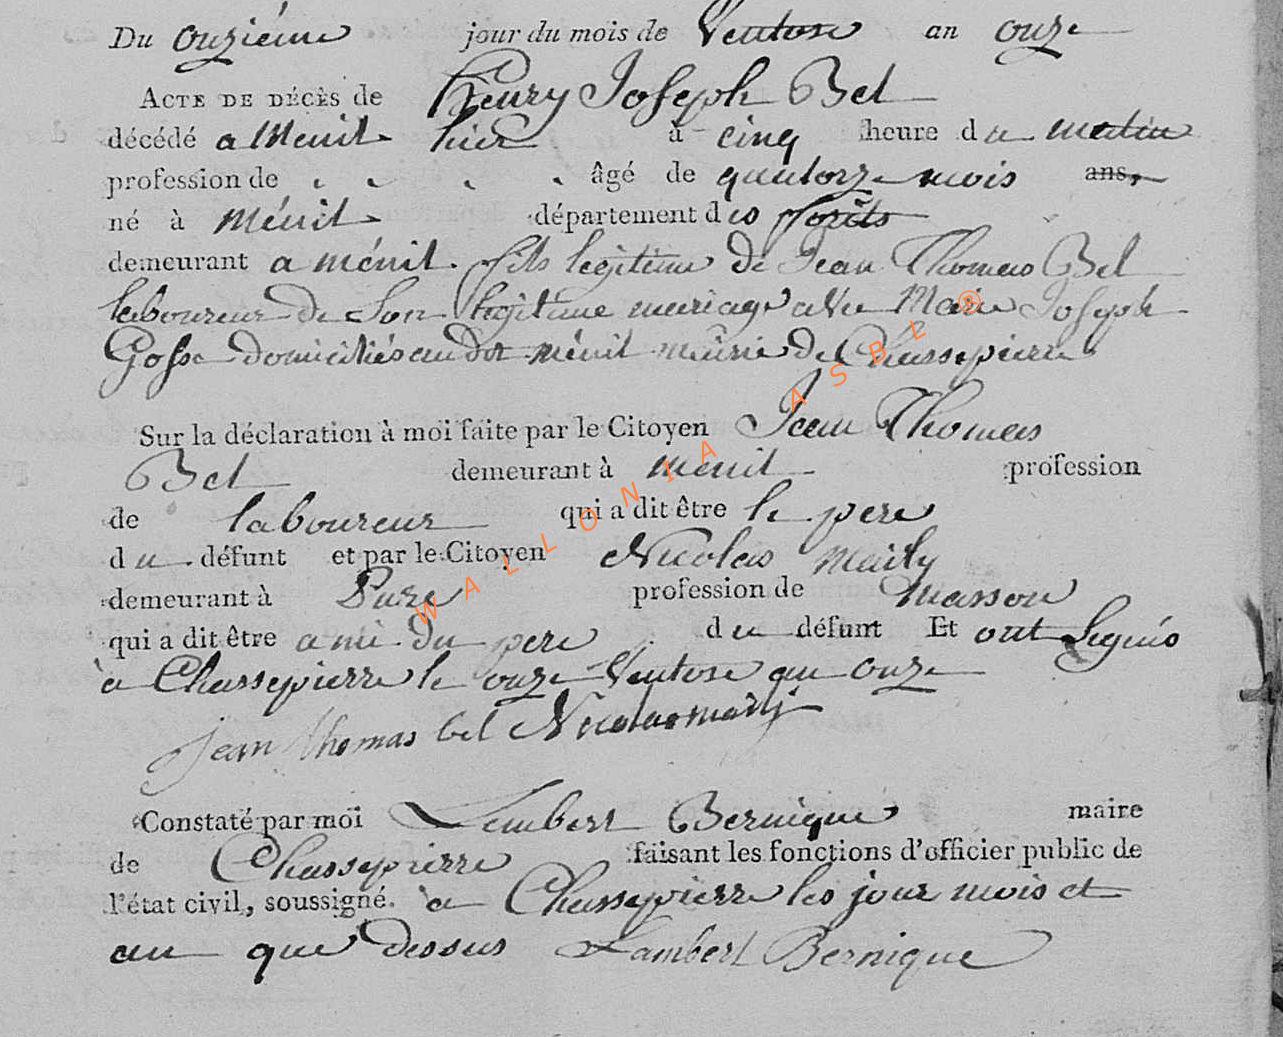 Du onziéme jour du mois de Ventose an onze
ACTE DE DÉCÈS de henry Joseph Bel
décédé a Menil hier à cinq heure du matin
profession de . . . . âgé de quatorze mois ans,
né à Ménil département des forêts
demeurant a ménil. fils legitime de Jean Thomas Bel
laboureur de Son legitime mariage avec Marie Joseph
Gosse domiciliés au dit ménil mairie de Chassepierre
Sur la déclaration à moi faite par le Citoyen Jean Thomas
Bel demeurant à menil profession
de laboureur qui a dit être le pere
du défunt et par le Citoyen Nicolas maily
demeurant à Pure profession de masson
qui a dit être ami du pere du défunt Et ont Signés
à Chassepierre le onze Ventose an onze
Jean thomas bel Nicolas
Constaté par moi Lambert Bernique maire
de Chassepierre faisant les fonctions d'officier public de
l'état civil, soussigné. à Chassepierre les jour mois et
an que dessus Lambert Bernique
WALLONIA ASBL ®